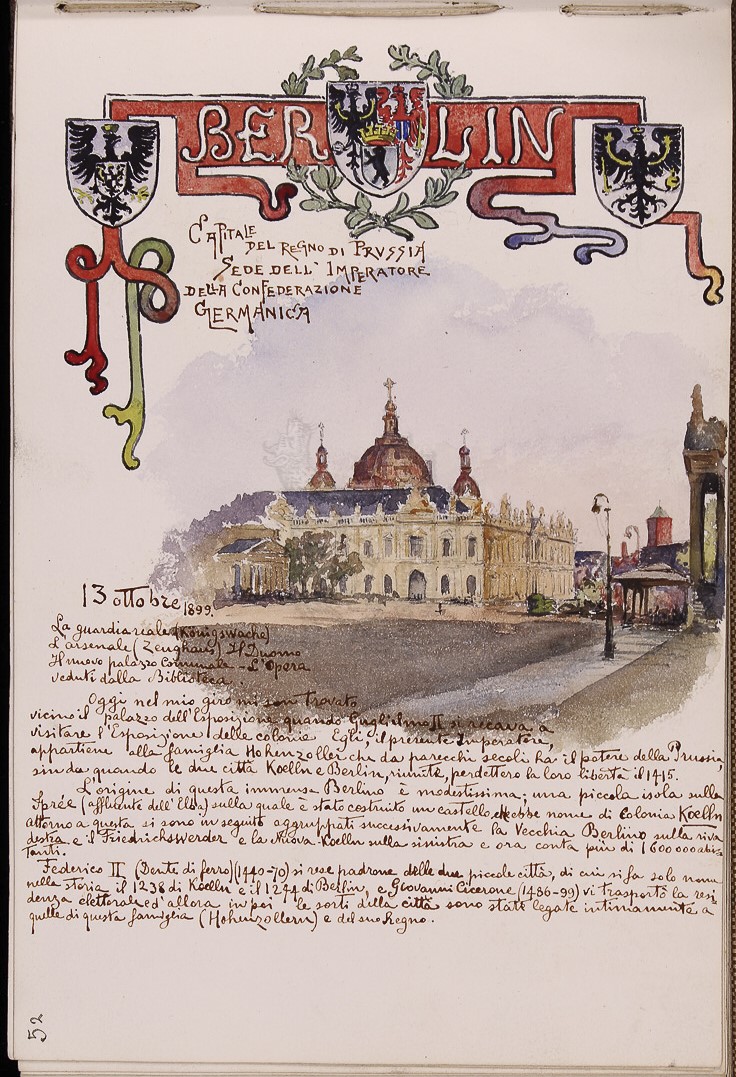 BERLIN
CAPITALE
DEL REGNO DI PRVSSIA
SEDE DELL' IMPERATORE
DELLA CONFEDERAZIONE
GERMANICA
13 ottobre 1899.
La guardia reale (Königswache)
L'arsenale (Zeughaus) Il Duomo
Il nuovo palazzo Comunale - L'Opera
veduti dalla Biblioteca.
Oggi nel mio giro mi son trovato
vicino il palazzo dell'Esposizione quando Guglielmo II si recava a
visitare l'Esposizione delle colonie Egli, il presente Imperatore,
appartiene alla famiglia Hohenzoller che da parecchi secoli ha il potere della Prussia,
sin da quando le due città Koelln e Berlin, riunite, perdettero la loro libertà il 1415.
L'origine di questa immensa Berlino è modestissima; una piccola isola sulla
Sprée (affluente dell'Elba) sulla quale è stato costruito un castello, ch'ebbe nome di Colonia Koelln
attorno a questa si sono in seguito aggruppati successivamente la Vecchia Berlino sulla riva
destra e il Friedrichswerder e la Nuova-Koelln sulla sinistra e ora conta più di 1600000 abi-
tanti.
Federico II (Dente di ferro) (1440-70) si rese padrone delle due piccole città, di cui si fa solo nome
nella storia il 1238 di Koelln e il 1244 di Berlin, e Giovanni Cicerone (1486-99) vi trasportò la resi-
denza elettorale ed'allora in poi le sorti della città sono state legate intimamente a
quelle di questa famiglia (Hohenzollern) e del suo Regno.
52